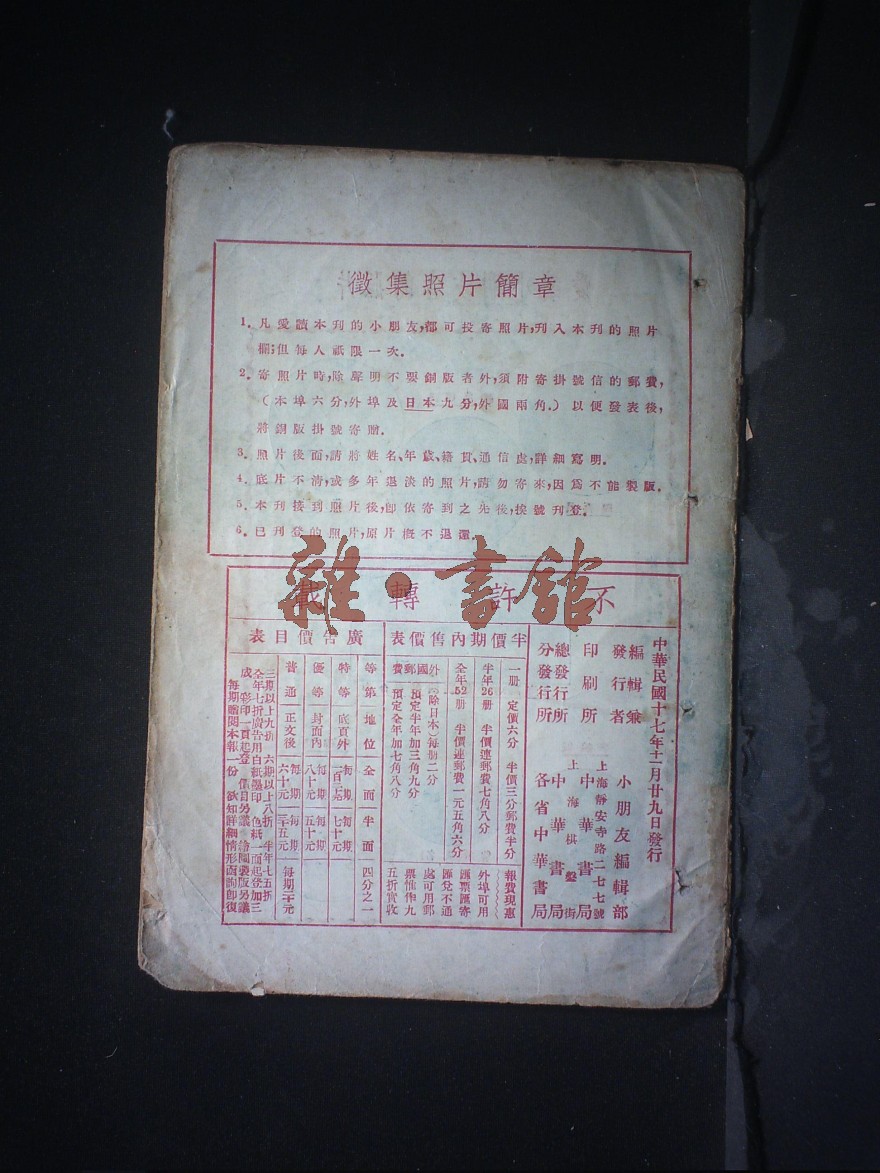 徵集照片簡章
1. 凡愛讀本刊的小朋友,都可投寄照片,刊入本刊的照片
欄;但每人祇限一次.
2. 寄照片時,除聲明不要銅版者外,須附寄掛號信的郵費,
(本埠六分,外埠及日本九分,外國兩角.)以便發表後,
將銅版掛號寄贈.
3. 照片後面,請將姓名、年歲、籍貫、通信處,詳細寫明.
4. 底片不清,或多年退淡的照片,請勿寄來,因爲不能製版.
5. 本刊接到照片後,卽依寄到之先後,挨號刊登.
6. 已刊登的照片,原片槪不退還.
雜·書館
不許轉載
中華民國十七年十一月廿九日發行
編輯兼發行者 小朋友編輯部
上海靜安寺路二七七號
印刷所 中華書局
上海棋盤街
總發行所 中華書局
分發行所 各省中華書局
半價期內售價表
一册 定價六分 半價三分郵費半分
半年26册 半價連郵費七角八分
全年52册 半價連郵費一元五角六分
外國郵費
(除日本)每册二分
預定半年加三角九分
預定全年加七角八分
報費現惠
外埠可用
匯票匯寄
匯兌不通
處可用郵
票惟作九
五折實收
廣告價目表
等第 地位 全面 半面 四分之一
特等 底頁外 每期 每期七十元
優等 封面內 每期八十元 每期五十元
普通 正文後 每期六十元 每期三十五元 每期二十元
三期以上九折 六期以上八折 半年七五折
全年七折廣告用白紙墨印 色紙一面起登加三
成 彩印一頁起登 價目另議 繪圖製版另議
每期贈閱本報一份 欲知詳細情形函詢卽復